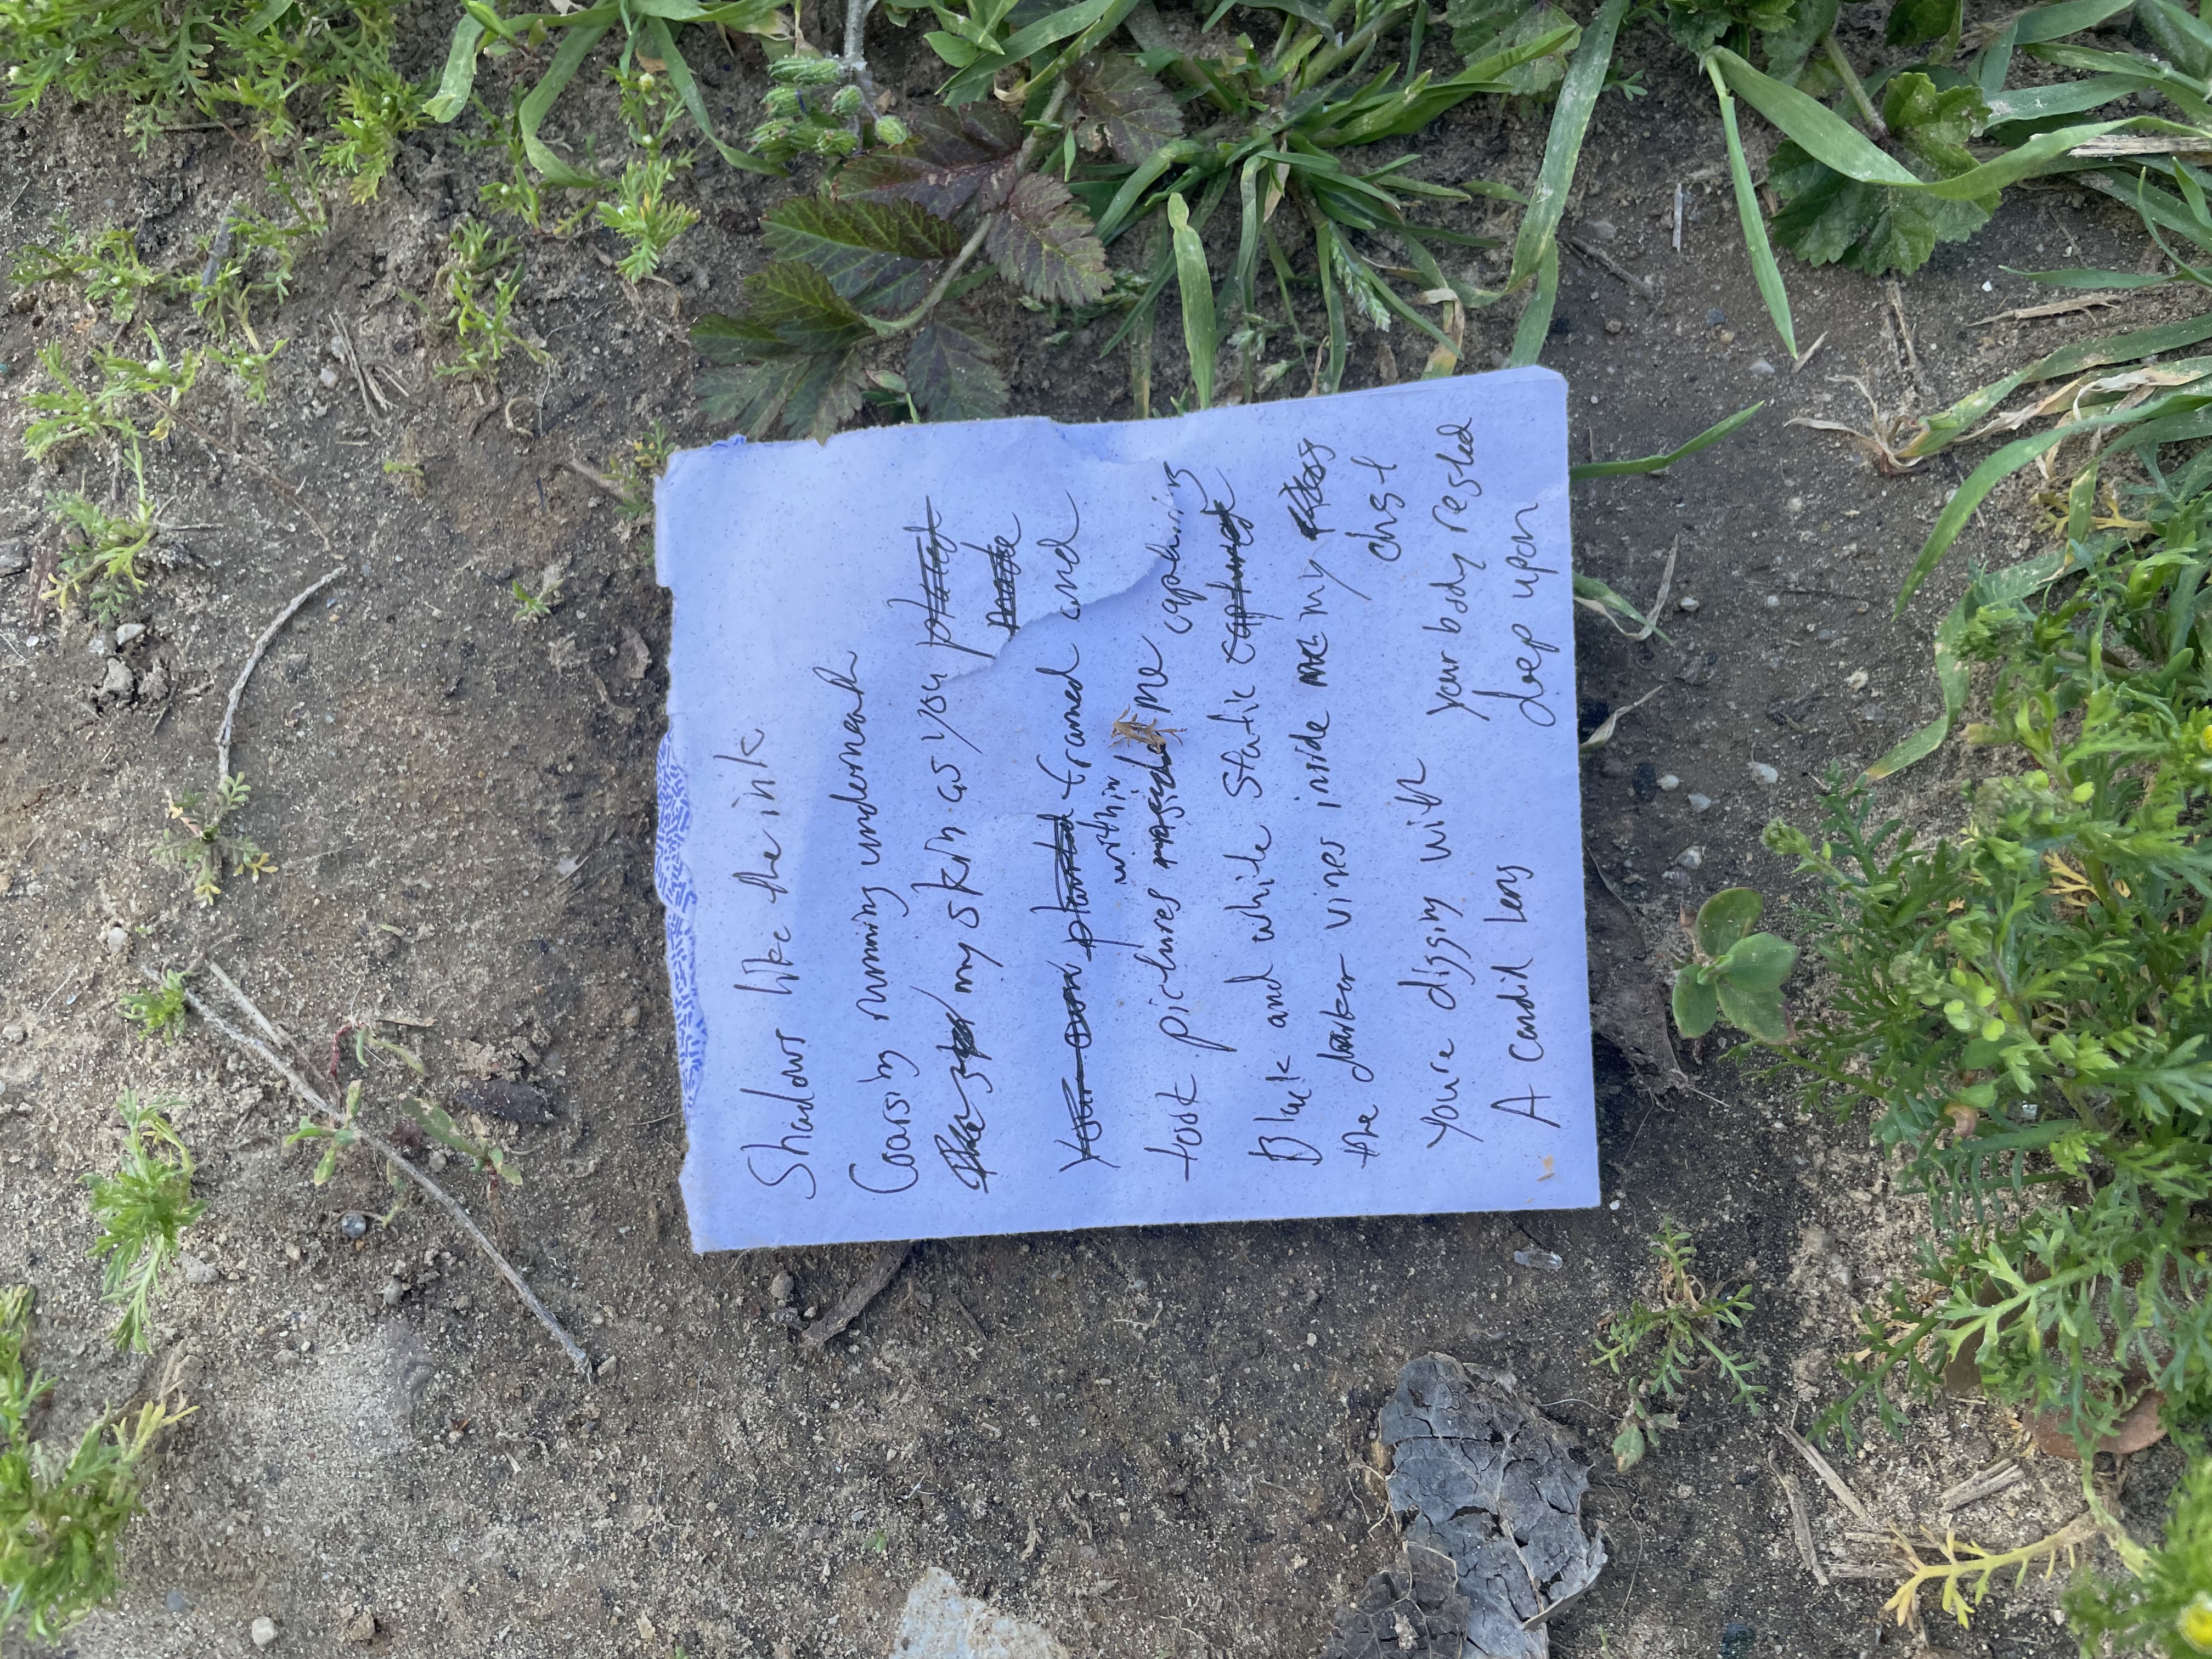 Shadows like the ink
Coarsing running underneath
my skin as you planted
framed and
within
took pictures inside me capturing
Black and white static captured
the darker vines inside me my
chest
youre digging with your body rested
A candid lens deep upon